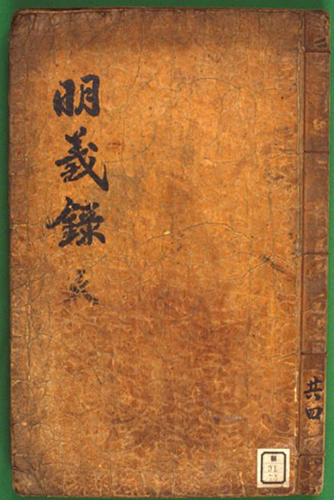 明義錄
共四